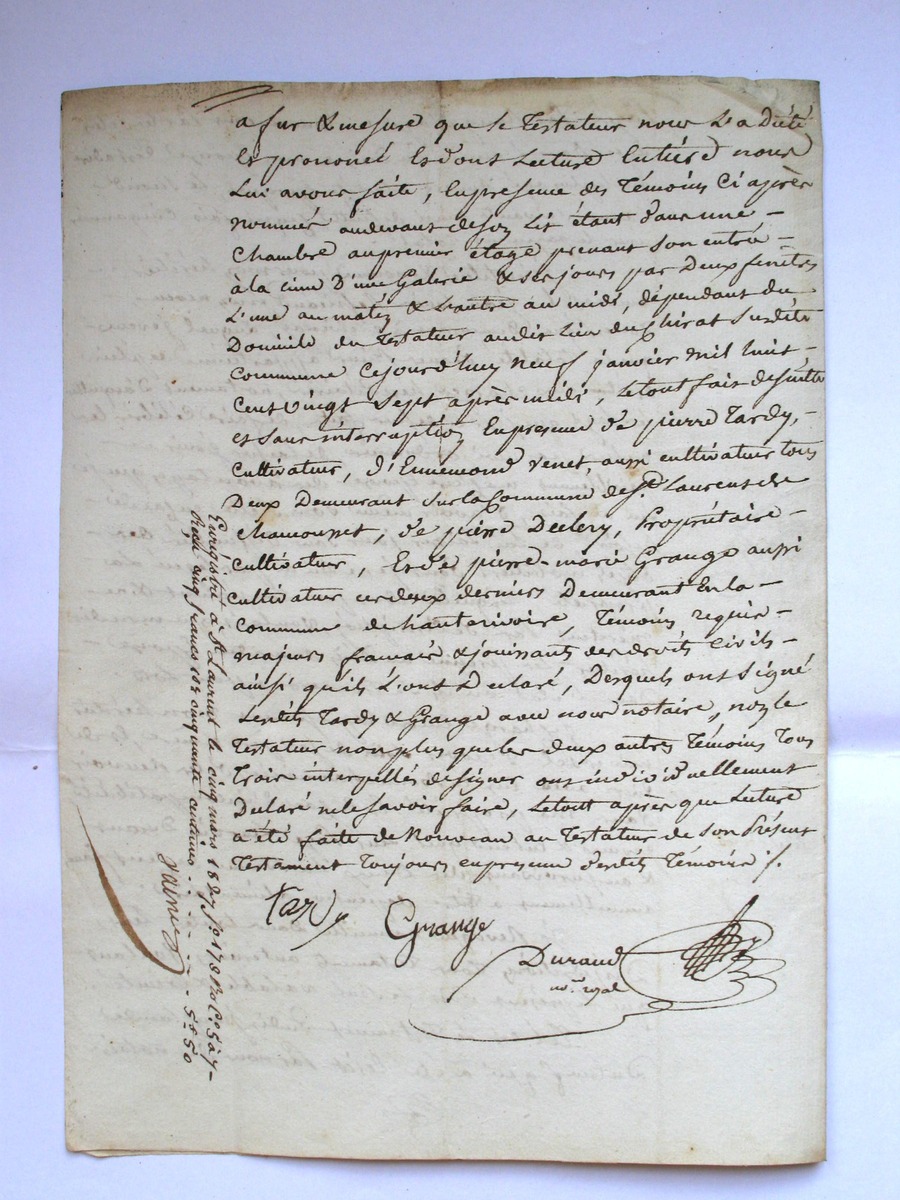 a fur & mesure que le Testateur nous L'a Dicté
Et prononcé Et d'ont Lecture Entière nous
Lui avons faite, En presence des Témoins Ci après
nommés audevant de son Lit étant dans une -
Chambre au premier étage prenant son entrée -
à la cime D'une Galerie & ses jours par Deux fenêtres
L'une au matin & L'autre au midi, dépendant du
Domicile du Testateur audit Lieu du Chirat Susdite
Commune Cejourd'huy Neuf janvier mil huit -
Cent Vingt Sept après midi, Le tout fait de suitte
et sans interruption En presence de pierre Tardy, -
Cultivateur, d'Ennemond Venet, aussi cultivateur tous
Deux Demeurant sur la Commune de St. Laurent de
Chamousset, de pierre Declery, Propriétaire -
Cultivateur, Et de pierre-marie Grange aussi
Cultivateur ces deux derniers Demeurant En la -
Commune de hauterivoire, Témoins requis -
majeurs francais & jouissants des droits Civils -
ainsi qu'ils L'ont Declaré, Desquels ont signé
Lesdits Tardy & Grange avec nous notaire, non le
Testateur non plus que les deux autres Témoins Tous
Trois interpellés de signer ont individuellement
Declaré ne le savoir faire, Le tout après que Lecture
a été faite de Nouveau au Testateur de son Présent
Testament Toujours en presence desdits Témoins /.
Tardy
Grange
Durand
not. royal
Enregistré à St Laurent le cinq mars 1827 fo 178 Ro C. 5 à 7 -
Reçu cinq francs et cinquante centimes . . . . . . 5 - 50